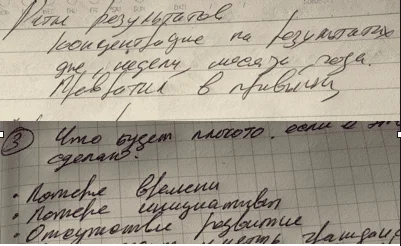 результатов
концентрация на результатах
дня, недели, месяца, года.
Превратил в привычку
③ Что будет плохого, если я это
сделаю?
• Потеря времени
• Потеря инициативы
• Отсутствие развития